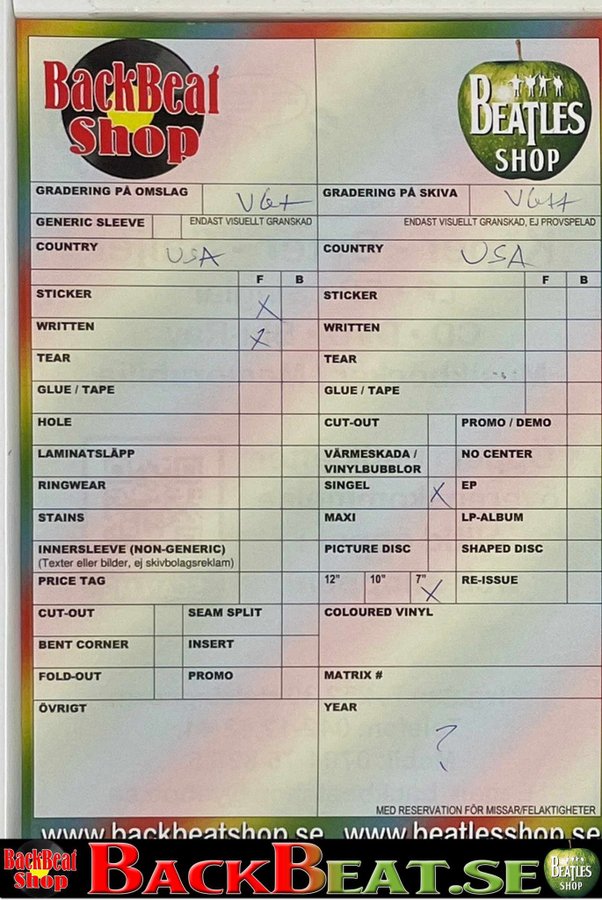 BackBeat
Shop
BEATLES
SHOP
GRADERING PÅ OMSLAG VG+ GRADERING PÅ SKIVA VG++
GENERIC SLEEVE ENDAST VISUELLT GRANSKAD ENDAST VISUELLT GRANSKAD, EJ PROVSPELAD
COUNTRY USA COUNTRY USA
F B F B
STICKER X STICKER
WRITTEN X WRITTEN
TEAR TEAR
GLUE / TAPE GLUE / TAPE
HOLE CUT-OUT PROMO / DEMO
LAMINATSLÄPP VÄRMESKADA / NO CENTER
VINYLBUBBLOR
RINGWEAR SINGEL X EP
STAINS MAXI LP-ALBUM
INNERSLEEVE (NON-GENERIC) PICTURE DISC SHAPED DISC
(Texter eller bilder, ej skivbolagsreklam)
PRICE TAG 12" 10" 7" X RE-ISSUE
CUT-OUT SEAM SPLIT COLOURED VINYL
BENT CORNER INSERT
FOLD-OUT PROMO MATRIX #
ÖVRIGT YEAR
?
MED RESERVATION FÖR MISSAR/FELAKTIGHETER
www.backbeatshop.se www.beatlesshop.se
BackBeat
Shop
BACKBEAT.SE
BEATLES
SHOP